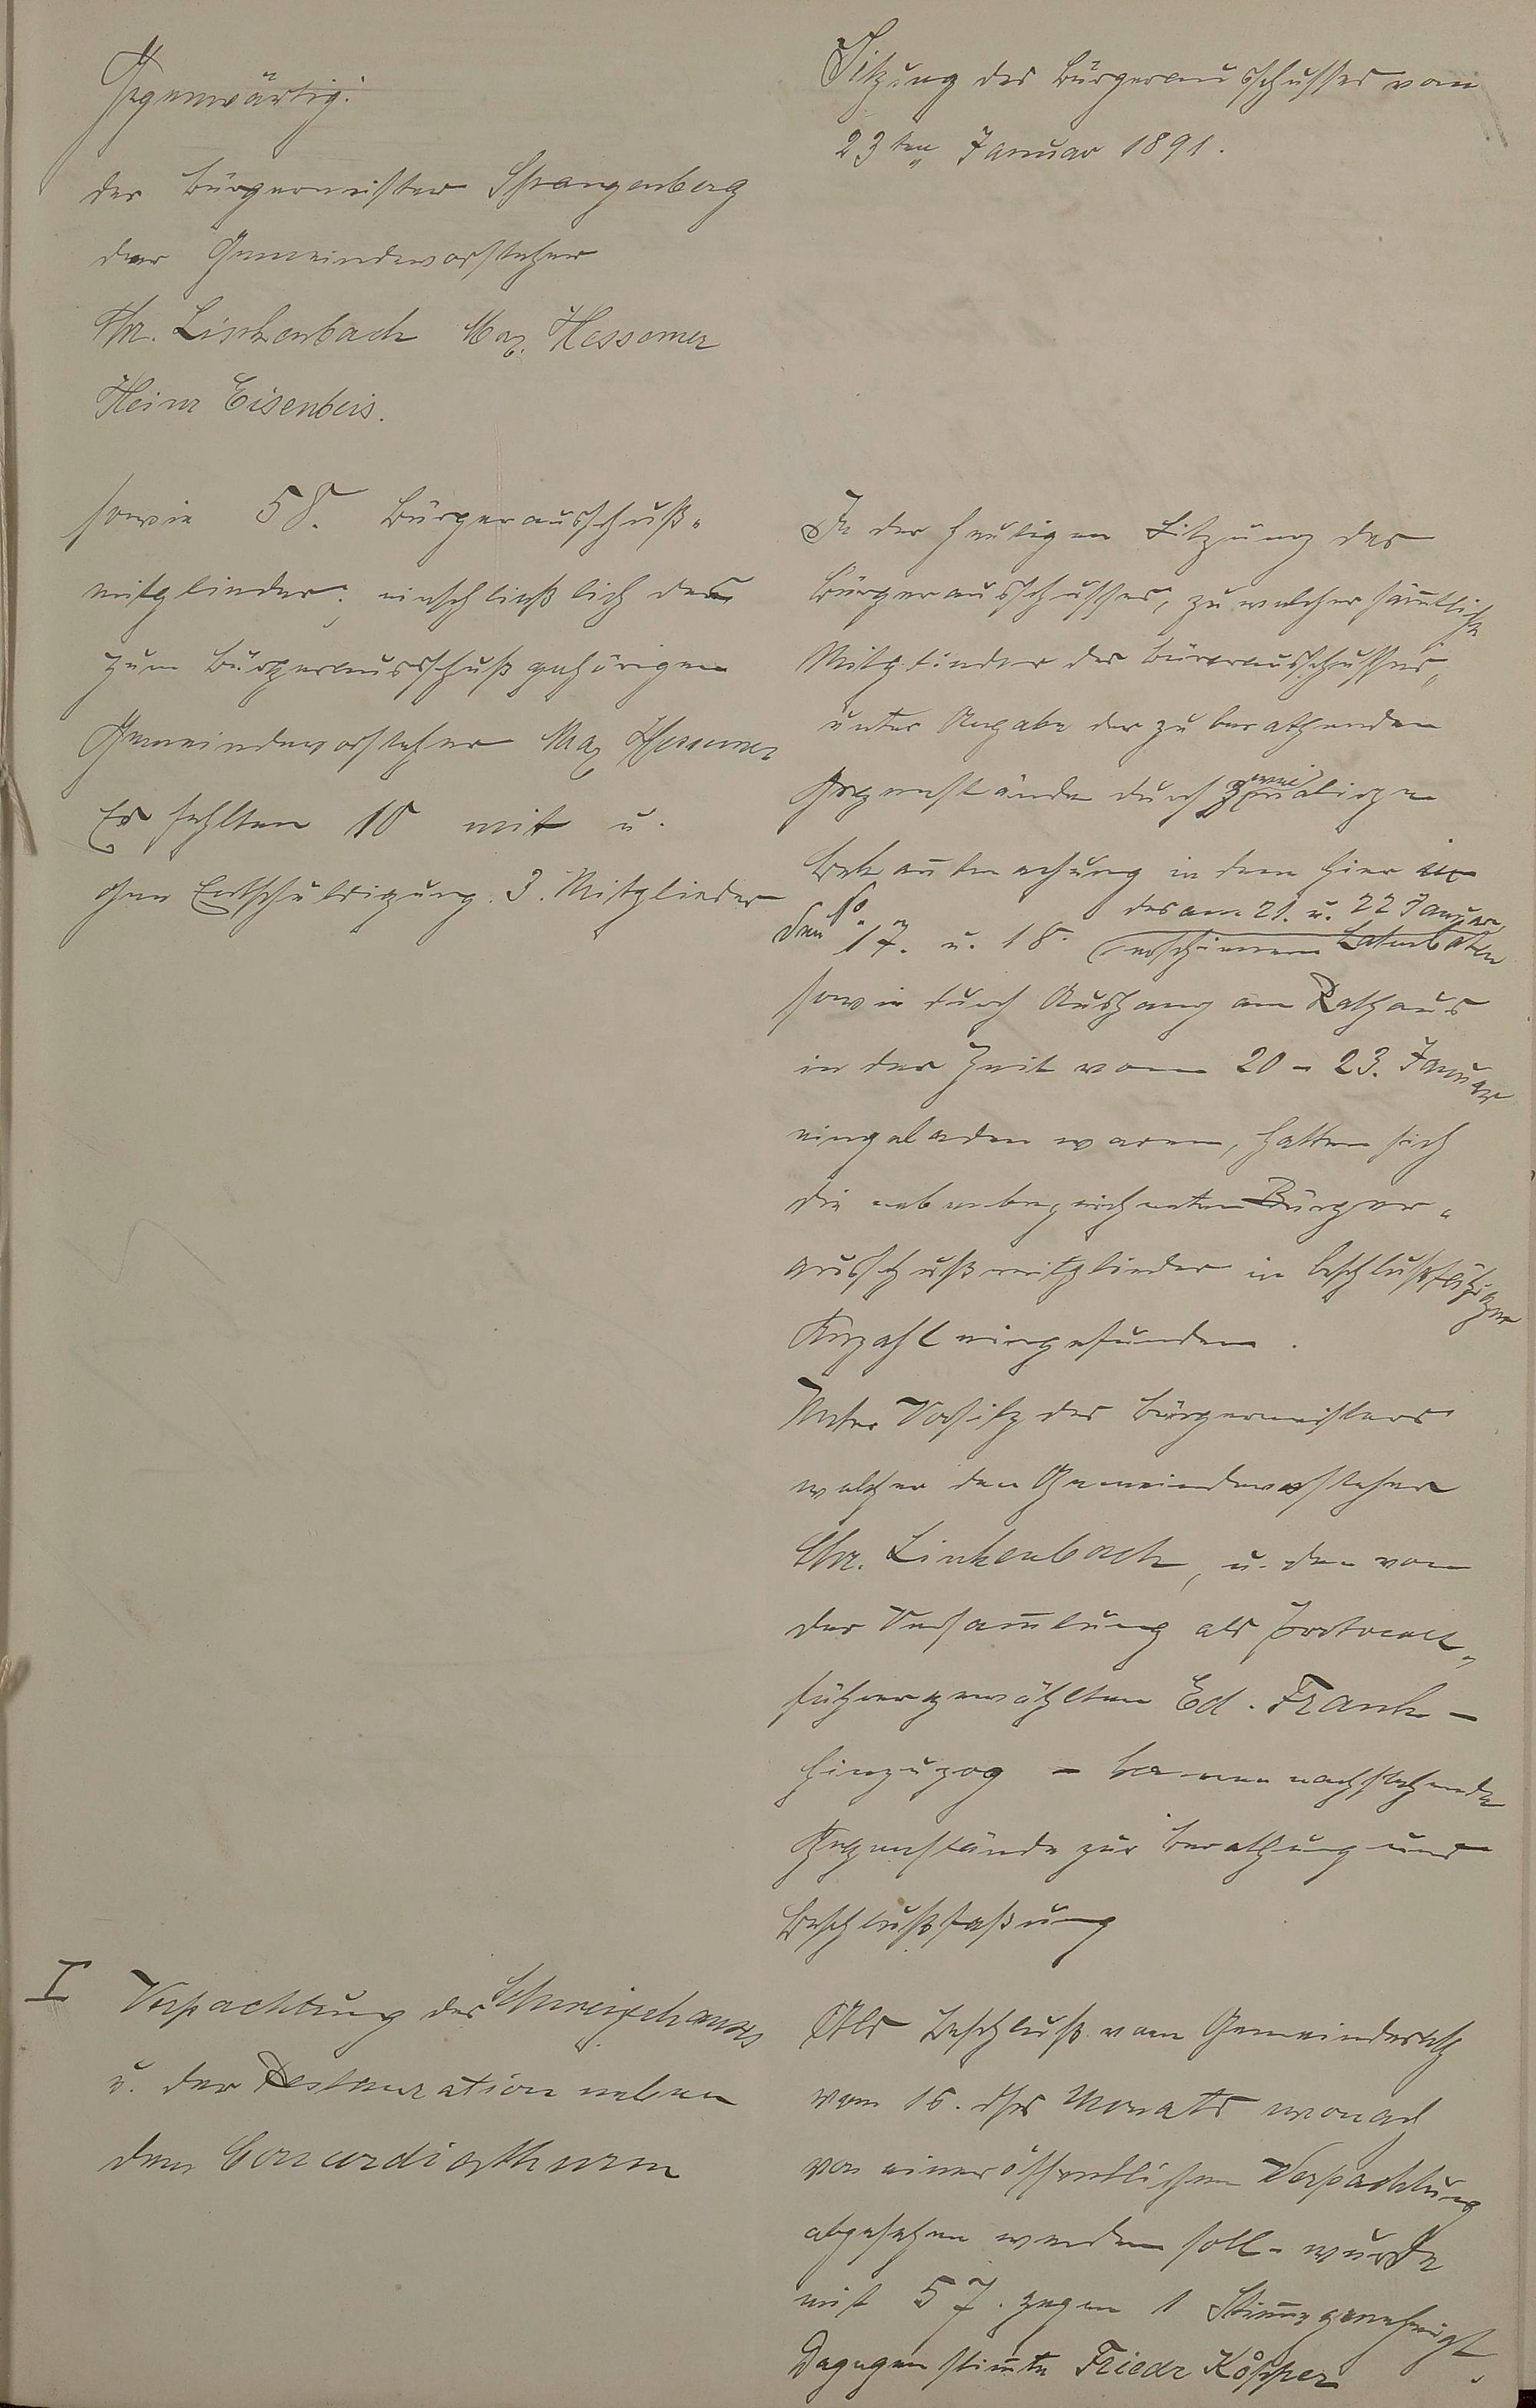 Gegenwärtig:
der Bürgermeister Spangenberg
der Gemeindevorsteher
Chr. Linkenbach Max Hessemer
Heinr Eisenbeis.
sowie 58. Bürgerausschuß-
mitglieder, einschließlich des
zum Bürgerausschuß gehörigen
Gemeindevorsteher Max Hessemer
Es fehlten 10 mit u.
ohne Entschuldigung 3. Mitglieder
Sitzung des Bürgerausschusses vom
23ten Januar 1891.
In der heutigen Sitzung des
Bürgerausschusses, zu welcher sämtliche
Mitglieder des Bürerausschusses,
unter Angabe der zu berathenden
Gegenstände durch zweimaligen
Bekanntmachung in dem hier
den 17. u. 18. des am 21. u. 22 Januar
erschienenen
sowie durch Aushang am Rathaus
in der Zeit vom 20 - 23. Januar
eingeladen waren, hatten sich
die nebenbezeichneten Bürger-
ausschußmitglieder in beschlußfähiger
Anzahl eingefunden.
Unter Vorsitz des Bürgermeisters
welcher den Gemeindevorsteher
Chr. Linkenbach, u. den von
der Versam̄lung als Protocoll-
führer gewählten Ed. Frank -
hinzuzog - kamen nachstehende
Gegenstände zur Berathung und
Beschlußfaßung
I Verpachtung des Schweizerhauses
u. der Restauration neben
dem Concordiathurm
Der Beschluß vom Gemeinderath
vom 16. dss Monats wonach
von einer öffentlichen Verpachtung
abgesehen werden soll - wurde
mit 57. gegen 1 Stim̄e genehmigt.
Dagegen stim̄te Friedr Köpper